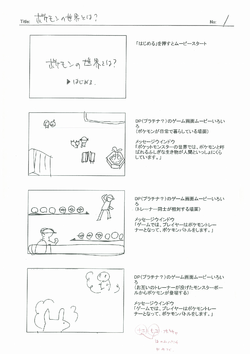 Title ポケモンの世界とは？ No. 1
ポケモンの世界とは？
▶はじめる
「はじめる」を押すとムービースタート
DP(プラチナ?)のゲーム画面ムービーいろいろ
(ポケモンが自宅で暮らしている場面)
メッセージウィンドウ
「ポケットモンスターの世界では、ポケモンと呼ばれるふしぎな生き物が人間といっしょにくらしています。」
DP(プラチナ?)のゲーム画面ムービーいろいろ
(トレーナー同士が相対する場面)
メッセージウィンドウ
「ゲームでは、プレイヤーはポケモントレーナーとなって、ポケモンバトルをします。」
DP(プラチナ?)のゲーム画面ムービーいろいろ
(お互いのトレーナーが投げたモンスターボールからポケモンが登場する)
メッセージウィンドウ
「ゲームでは、プレイヤーはポケモントレーナーとなって、ポケモンバトルをします。」